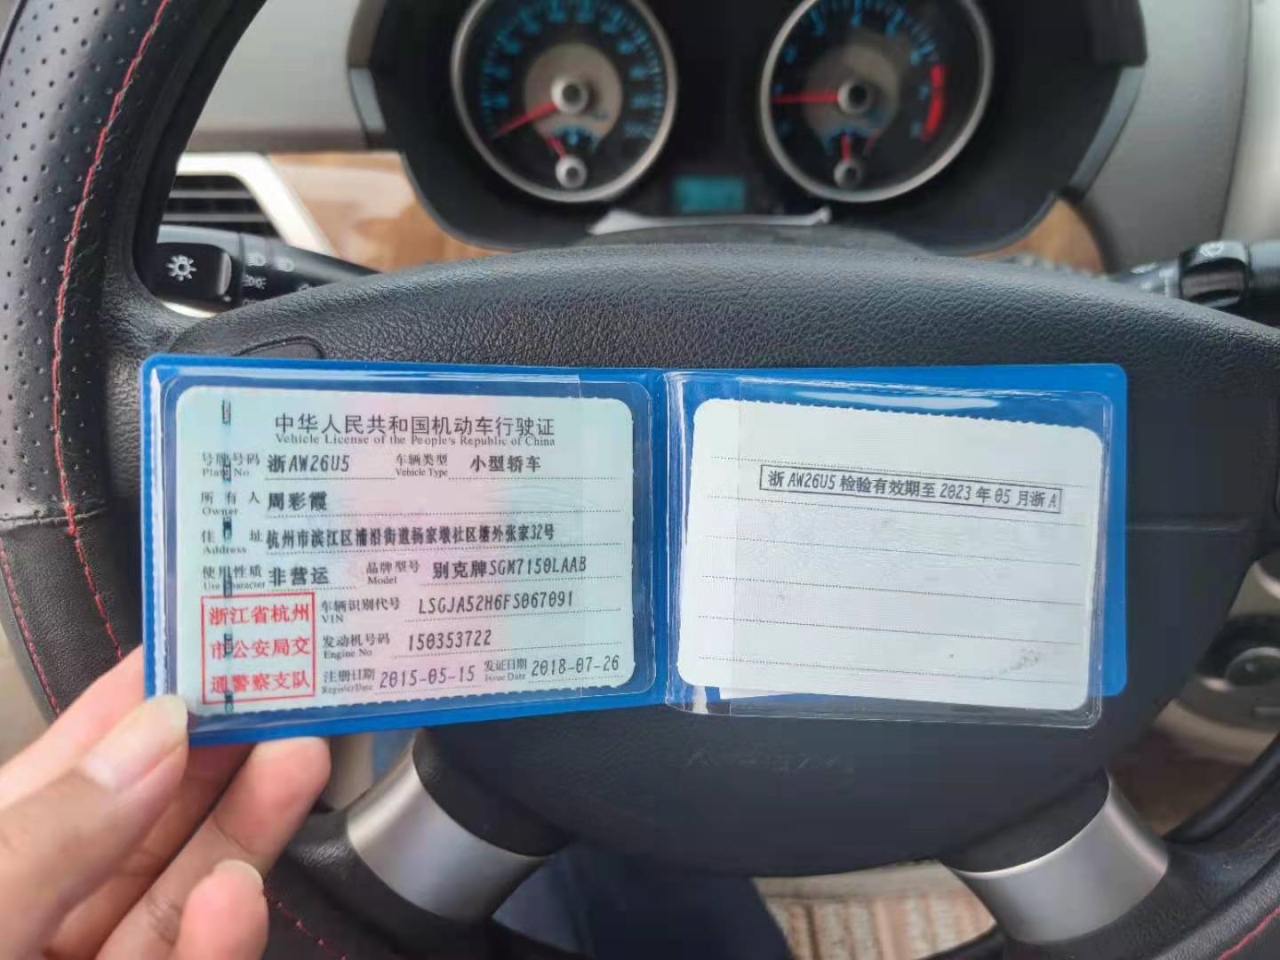 中华人民共和国机动车行驶证
Vehicle License of the People's Republic of China
号牌号码 浙AW26U5 车辆类型 小型轿车
Plate No Vehicle Type
所有人 周彩霞
Owner
住址 杭州市滨江区浦沿街道杨家墩社区塘外张家32号
Address
使用性质 非营运 品牌型号 别克牌SGM7150LAAB
Use Character Model
浙江省杭州
市公安局交
通警察支队
车辆识别代号 LSGJA52H6FS067091
VIN
发动机号码 150353722
Engine No
注册日期 2015-05-15 发证日期 2018-07-26
Register Date Issue Date
浙AW26U5检验有效期至2023年05月浙A